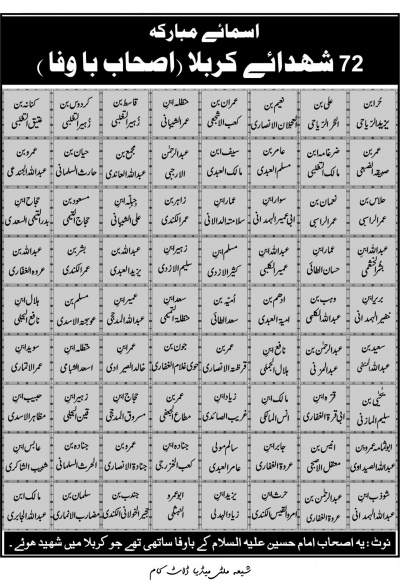 اسمائے مبارکہ
72 شھدائے کربلا (اصحاب با وفا)
حر ابن یزید الریاحی
علی بن حر الریاحی
نعیم بن العجلان الانصاری
عمران بن کعب الاشجعی
حنظلہ ابن عمر الشیبانی
قاسط بن زہیر التغلبی
کردوس بن زہیر التغلبی
کنانہ بن عتیق التغلبی
عمر بن صبیقہ الضبعی
ضرغامہ ابن مالک تغلبی
عامر بن مسلم العبدی
سیف ابن مالک العبدی
عبدالرحمٰن الارحبی
مجمع بن عبداللہ العائدی
حیان بن حارث السلمانی
عمرو بن عبداللہ الجندعی
حلاس بن عمر الراسبی
نعمان بن عمر الراسبی
سوار ابن ابی عمیر الہمدانی
عمار ابن سلامتہ الدالانی
زاہر بن عمر الکندی
جبلہ ابن علی الشیبانی
مسعود بن حجاج التیمی
حجاج ابن بدر التیمی السعدی
عبداللہ ابن بشر الخثعمی
عمار ابن حسان الطائی
عبداللہ ابن عمیر الکلبی
مسلم ابن کثیر الازدی
زہیر ابن سلیم الازدی
عبداللہ بن یزید العبدی
بشر بن عمر الکندی
عبداللہ بن عروہ الغفاری
بریر ابن خضیر الہمدانی
وہب بن عبداللہ الکلبی
ادہم بن امیۃ العبدی
امیہ بن سعد الطائی
سعد ابن حنظلہ التمیمی
عمیر ابن عبداللہ المذحجی
مسلم بن عوسجۃ الاسدی
ہلال ابن نافع البجلی
سعید بن عبداللہ الحنفی
عبدالرحمٰن بن عبد المزنی
نافع ابن ہلال الجملی
عمر ابن قرظۃ الانصاری
جون بن حوی غلام الغفاری
عمر ابن خالد الصیداوی
حنظلہ ابن اسعد الشبامی
سوید ابن عمر الانماری
یحیٰی بن سلیم المازنی
قرہ ابن ابی قرۃ الغفاری
مالک ابن انس المالکی
زیاد ابن غریب الصائدی
عمر بن مطاع الجعفی
حجاج ابن مسروق المذحجی
زہیر ابن قین البجلی
حبیب ابن مظاہر الاسدی
ابوثمامہ عمرو بن عبداللہ الصیداوی
انیس بن معقل الاصبحی
جابر ابن عروۃ الغفاری
سالم مولی عامر العبدی
جنادہ ابن کعب الخزرجی
عمر بن جنادۃ الانصاری
جنادہ بن الحرث السلمانی
عابس ابن شبیب الشاکری
شوذب ابن عبداللہ
عبدالرحمٰن بن عروۃ الغفاری
حرث ابن امرو القیس الکندی
یزید ابن زیاد الہدلی
ابو عمرو النہشلی
جندب بن حجیر الخولانی الکندی
سلمان بن مضارب الانماری
مالک ابن عبداللہ الجابری
نوٹ: یہ اصحاب امام حسین علیہ السلام کے باوفا ساتھی تھے جو کربلا میں شھید ھوئے۔
شیعہ ملٹی میڈیا ڈاٹ کام